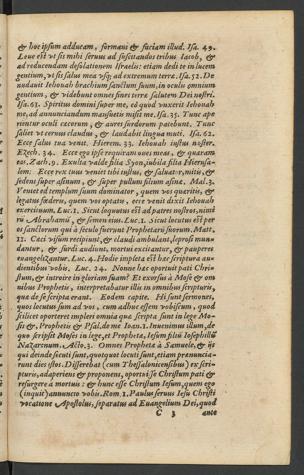 & hoc ipsum adducam, formaui & faciam illud. Isa. 49.
Leue est vt sis mihi seruus ad suscitandas tribus Iacob, &
ad reducendam desolationem Israelis: etiam dedi te in lucem
gentium, vt sis salus mea vsq; ad extremum terræ. Isa. 52. De
nudauit Iehouah brachium sanctum suum, in oculis omnium
gentium, & videbunt omnes fines terræ salutem Dei nostri.
Isa. 61. Spiritus domini super me, eò quòd vnxerit Iehouah
me, ad annunciandum mansuetis misit me. Isa. 35. Tunc ape
rientur oculi cæcorum, & aures surdorum patebunt. Tunc
saliet vt ceruus claudus, & laudabit lingua muti. Isa. 62.
Ecce salus tua venit. Hierem. 33. Iehouah iustus noster.
Ezech. 34. Ecce ego ipse requiram oues meas, & quæram
eas. Zach. 9. Exulta valde filia Syon, iubila filia Hierusa-
lem: Ecce rex tuus veniet tibi iustus, & saluator, mitis, &
sedens super asinum, & super pullum filium asinæ. Mal. 3.
Veniet ad templum suum dominator, quem vos quæritis, &
legatus fœderis, quem vos optatis, ecce venit dixit Iehouah
exercituum. Luc. 1. Sicut loquutus est ad patres nostros, nimi
rũ Abrahamũ, & semen eius. Luc. 1. Sicut locutus est per
os sanctorum qui à seculo fuerunt Prophetarũ suorum. Matt.
11. Cæci visum recipiunt, & claudi ambulant, leprosi mun-
dantur, & surdi audiunt, mortui excitantur, & pauperes
euangelizantur. Luc. 4. Hodie impleta est hæc scriptura au
dientibus vobis. Luc. 24. Nonne hæc oportuit pati Chri-
stum, & introire in gloriam suam? Et exorsus à Mose & om
nibus Prophetis, interpretabatur illis in omnibus scripturis,
quæ de se scripta erant. Eodem capite. Hi sunt sermones,
quos locutus sum ad vos, cum adhuc essem vobiscum, quod
scilicet oporteret impleri omnia quæ scripta sunt in lege Mo-
sis &, Prophetis & Psal. de me Ioan. 1. Inuenimus illum, de
quo scripsit Moses in lege, et Prophetæ, Iesum filiũ Iosephi
Nazarenum. Acto. 3. Omnes Prophetæ à Samuele, & ij
qui deinde secuti sunt, quotquot locuti sunt, etiam prenuncia-
runt dies istos. Disserebat (cum Thessalonicensibus) ex scri-
pturis, adaperiens & proponens, oportuisse Christum pati &
resurgere à mortuis: & hunc esse Christum Iesum, quem ego
(inquit) annuncio vobis. Rom. 1. Paulus seruus Iesu Christi
vocatione Apostolus, separatus ad Euangelium Dei, quod
C 3 ante